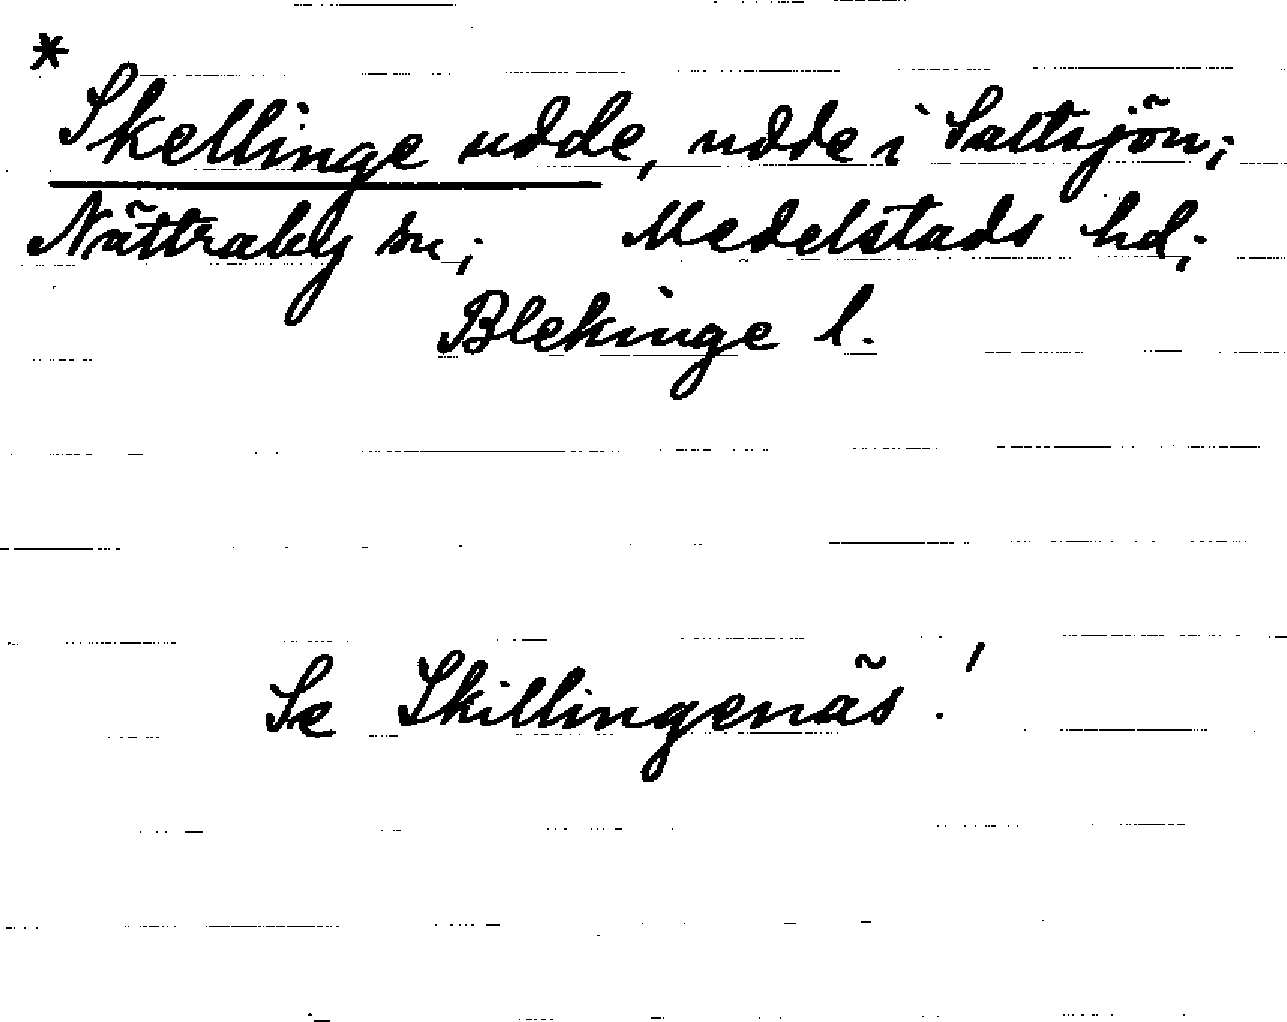 * Skellinge udde, udde i Saltsjön;
Nättraby sn; Medelstads hd;
Blekinge l.
Se Skillingenäs!